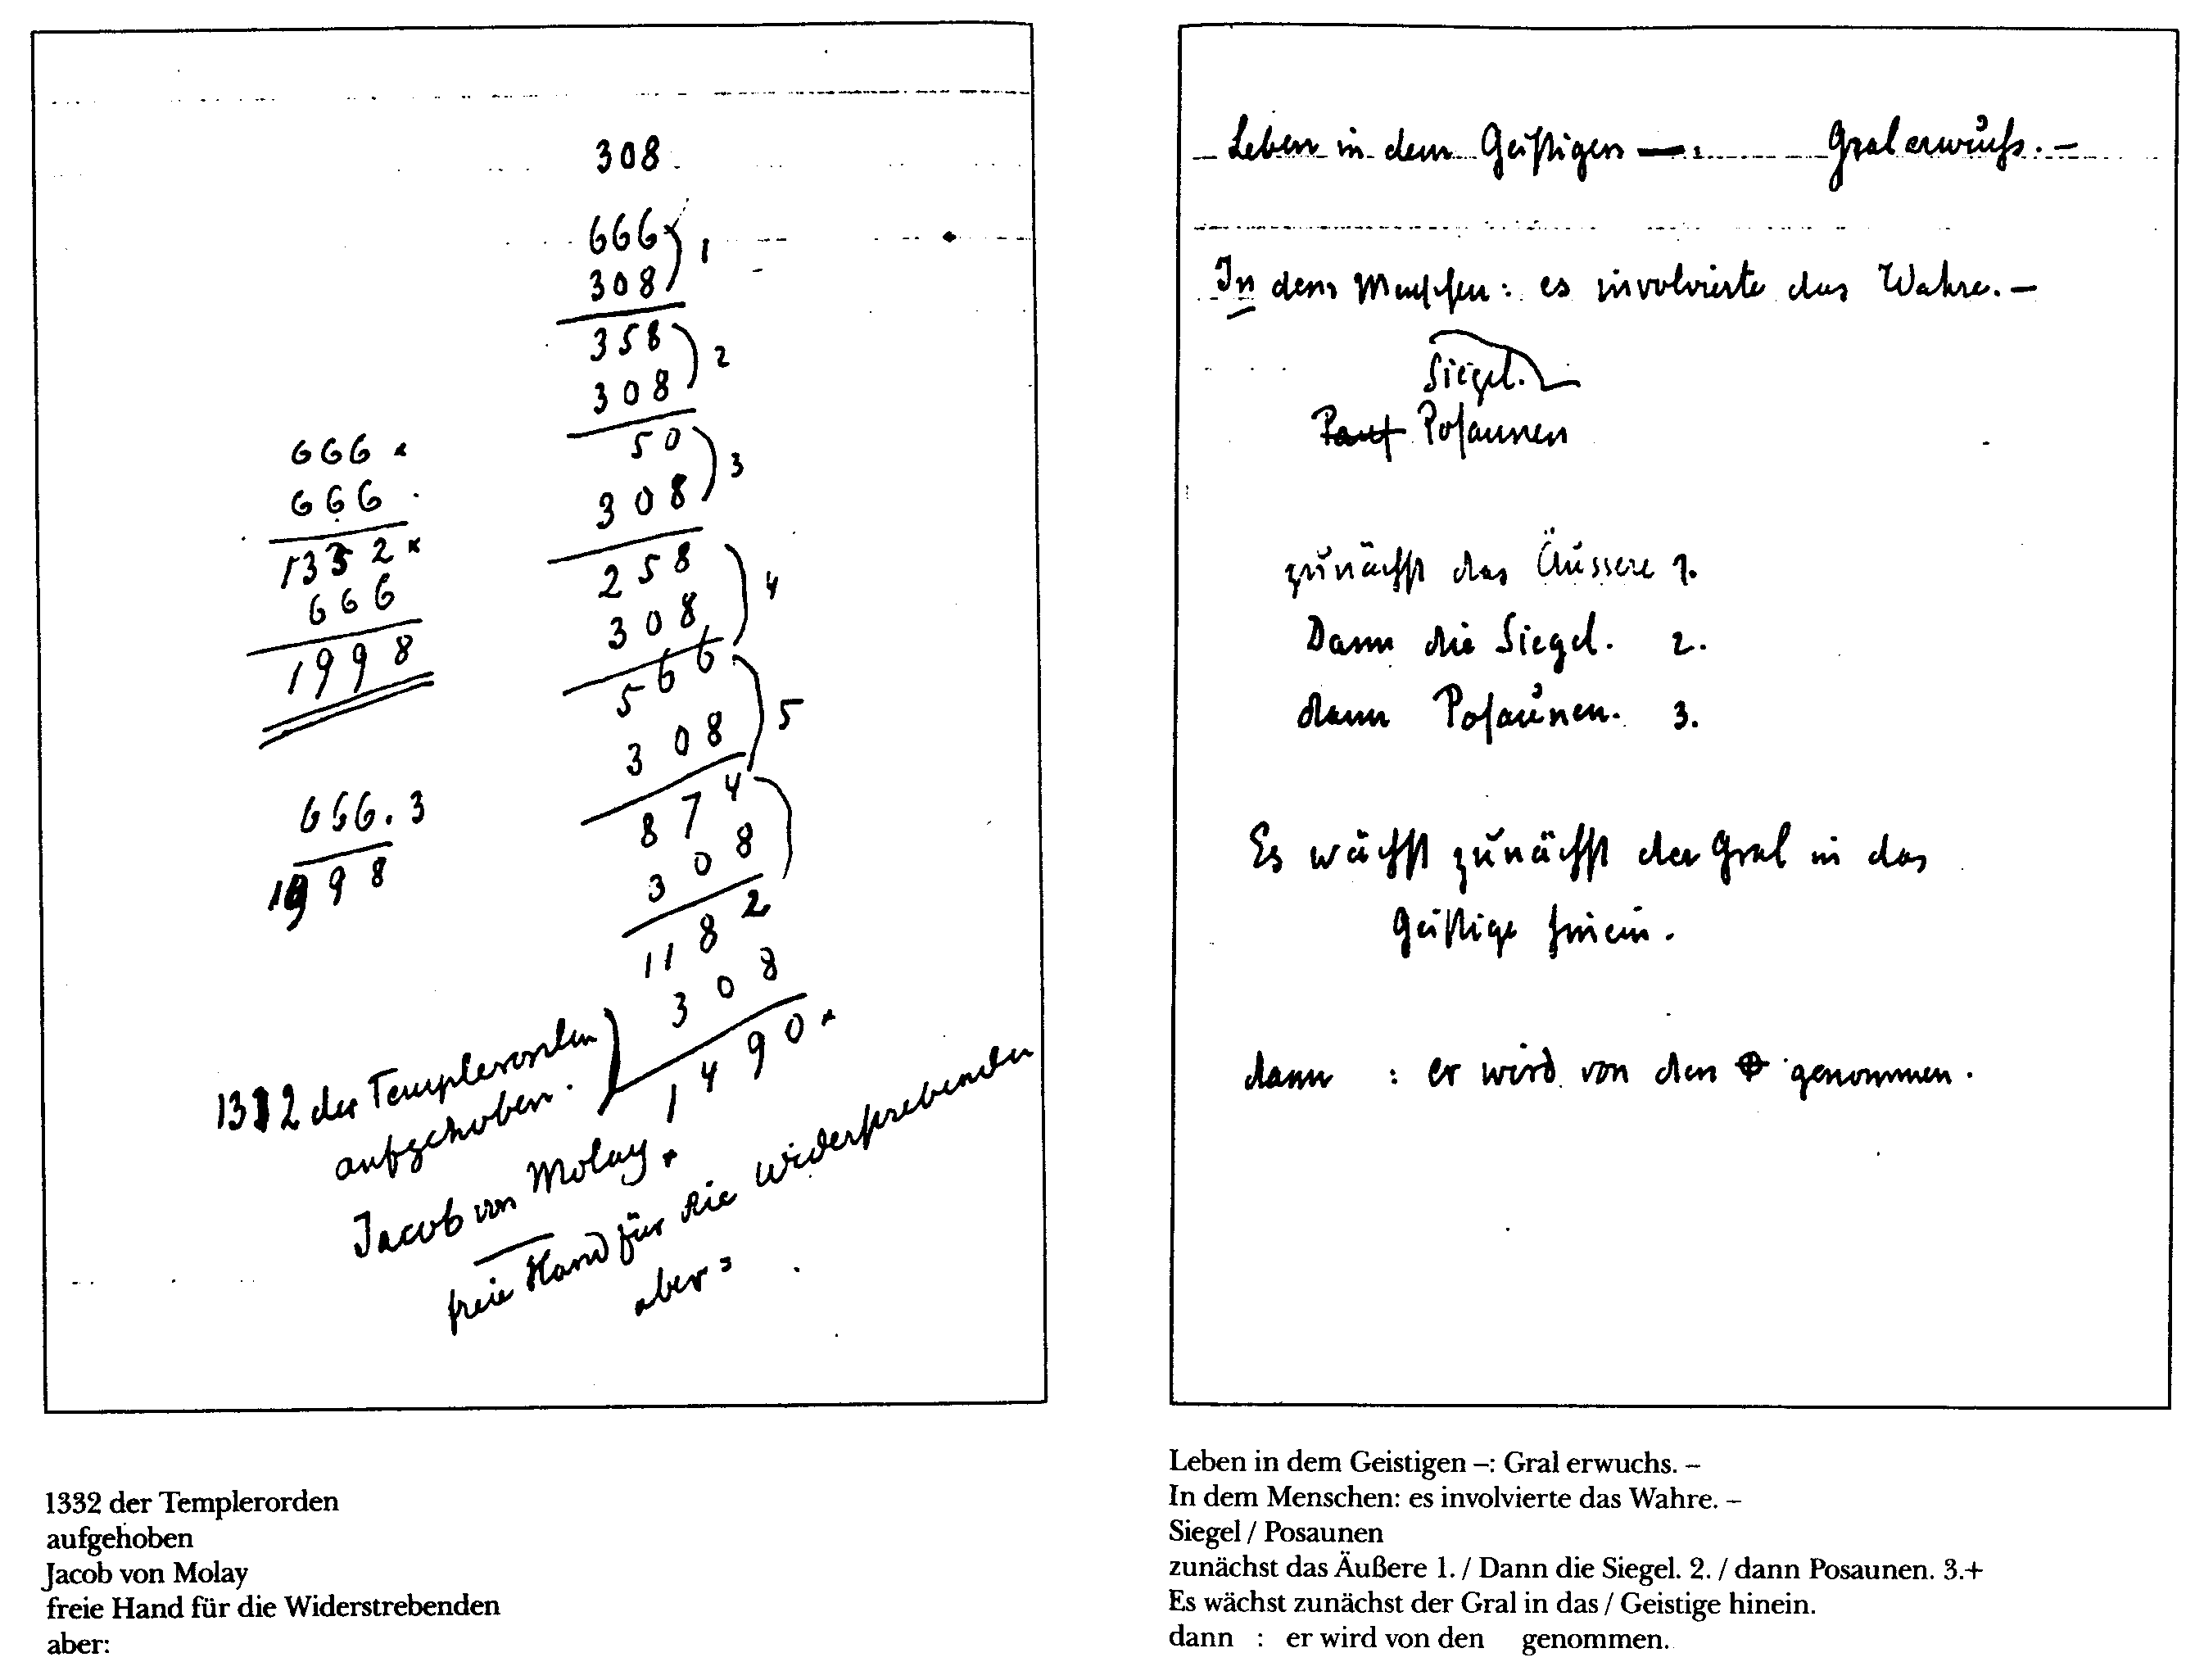 308
666 } 1
308
358 } 2
308
50 } 3
308
258 } 4
308
566 } 5
308
874 }
308
1182
308
1490
666
666
1332
666
1998
666.3
1998
1332 der Templerorden
aufgehoben.
Jacob von Molay
freie Hand für die Widerstrebenden
aber:
Leben in dem Geistigen —: Gral erwuchs. –
In dem Menschen: es involvierte das Wahre. –
Siegel.
Posaunen
zunächst das Äussere 1.
Dann die Siegel. 2.
dann Posaunen. 3.
Es wächst zunächst der Gral in das
Geistige hinein.
dann : er wird von den genommen.
1332 der Templerorden
aufgehoben
Jacob von Molay
freie Hand für die Widerstrebenden
aber:
Leben in dem Geistigen –: Gral erwuchs. –
In dem Menschen: es involvierte das Wahre. –
Siegel / Posaunen
zunächst das Äußere 1. / Dann die Siegel. 2. / dann Posaunen. 3.+
Es wächst zunächst der Gral in das / Geistige hinein.
dann : er wird von den genommen.